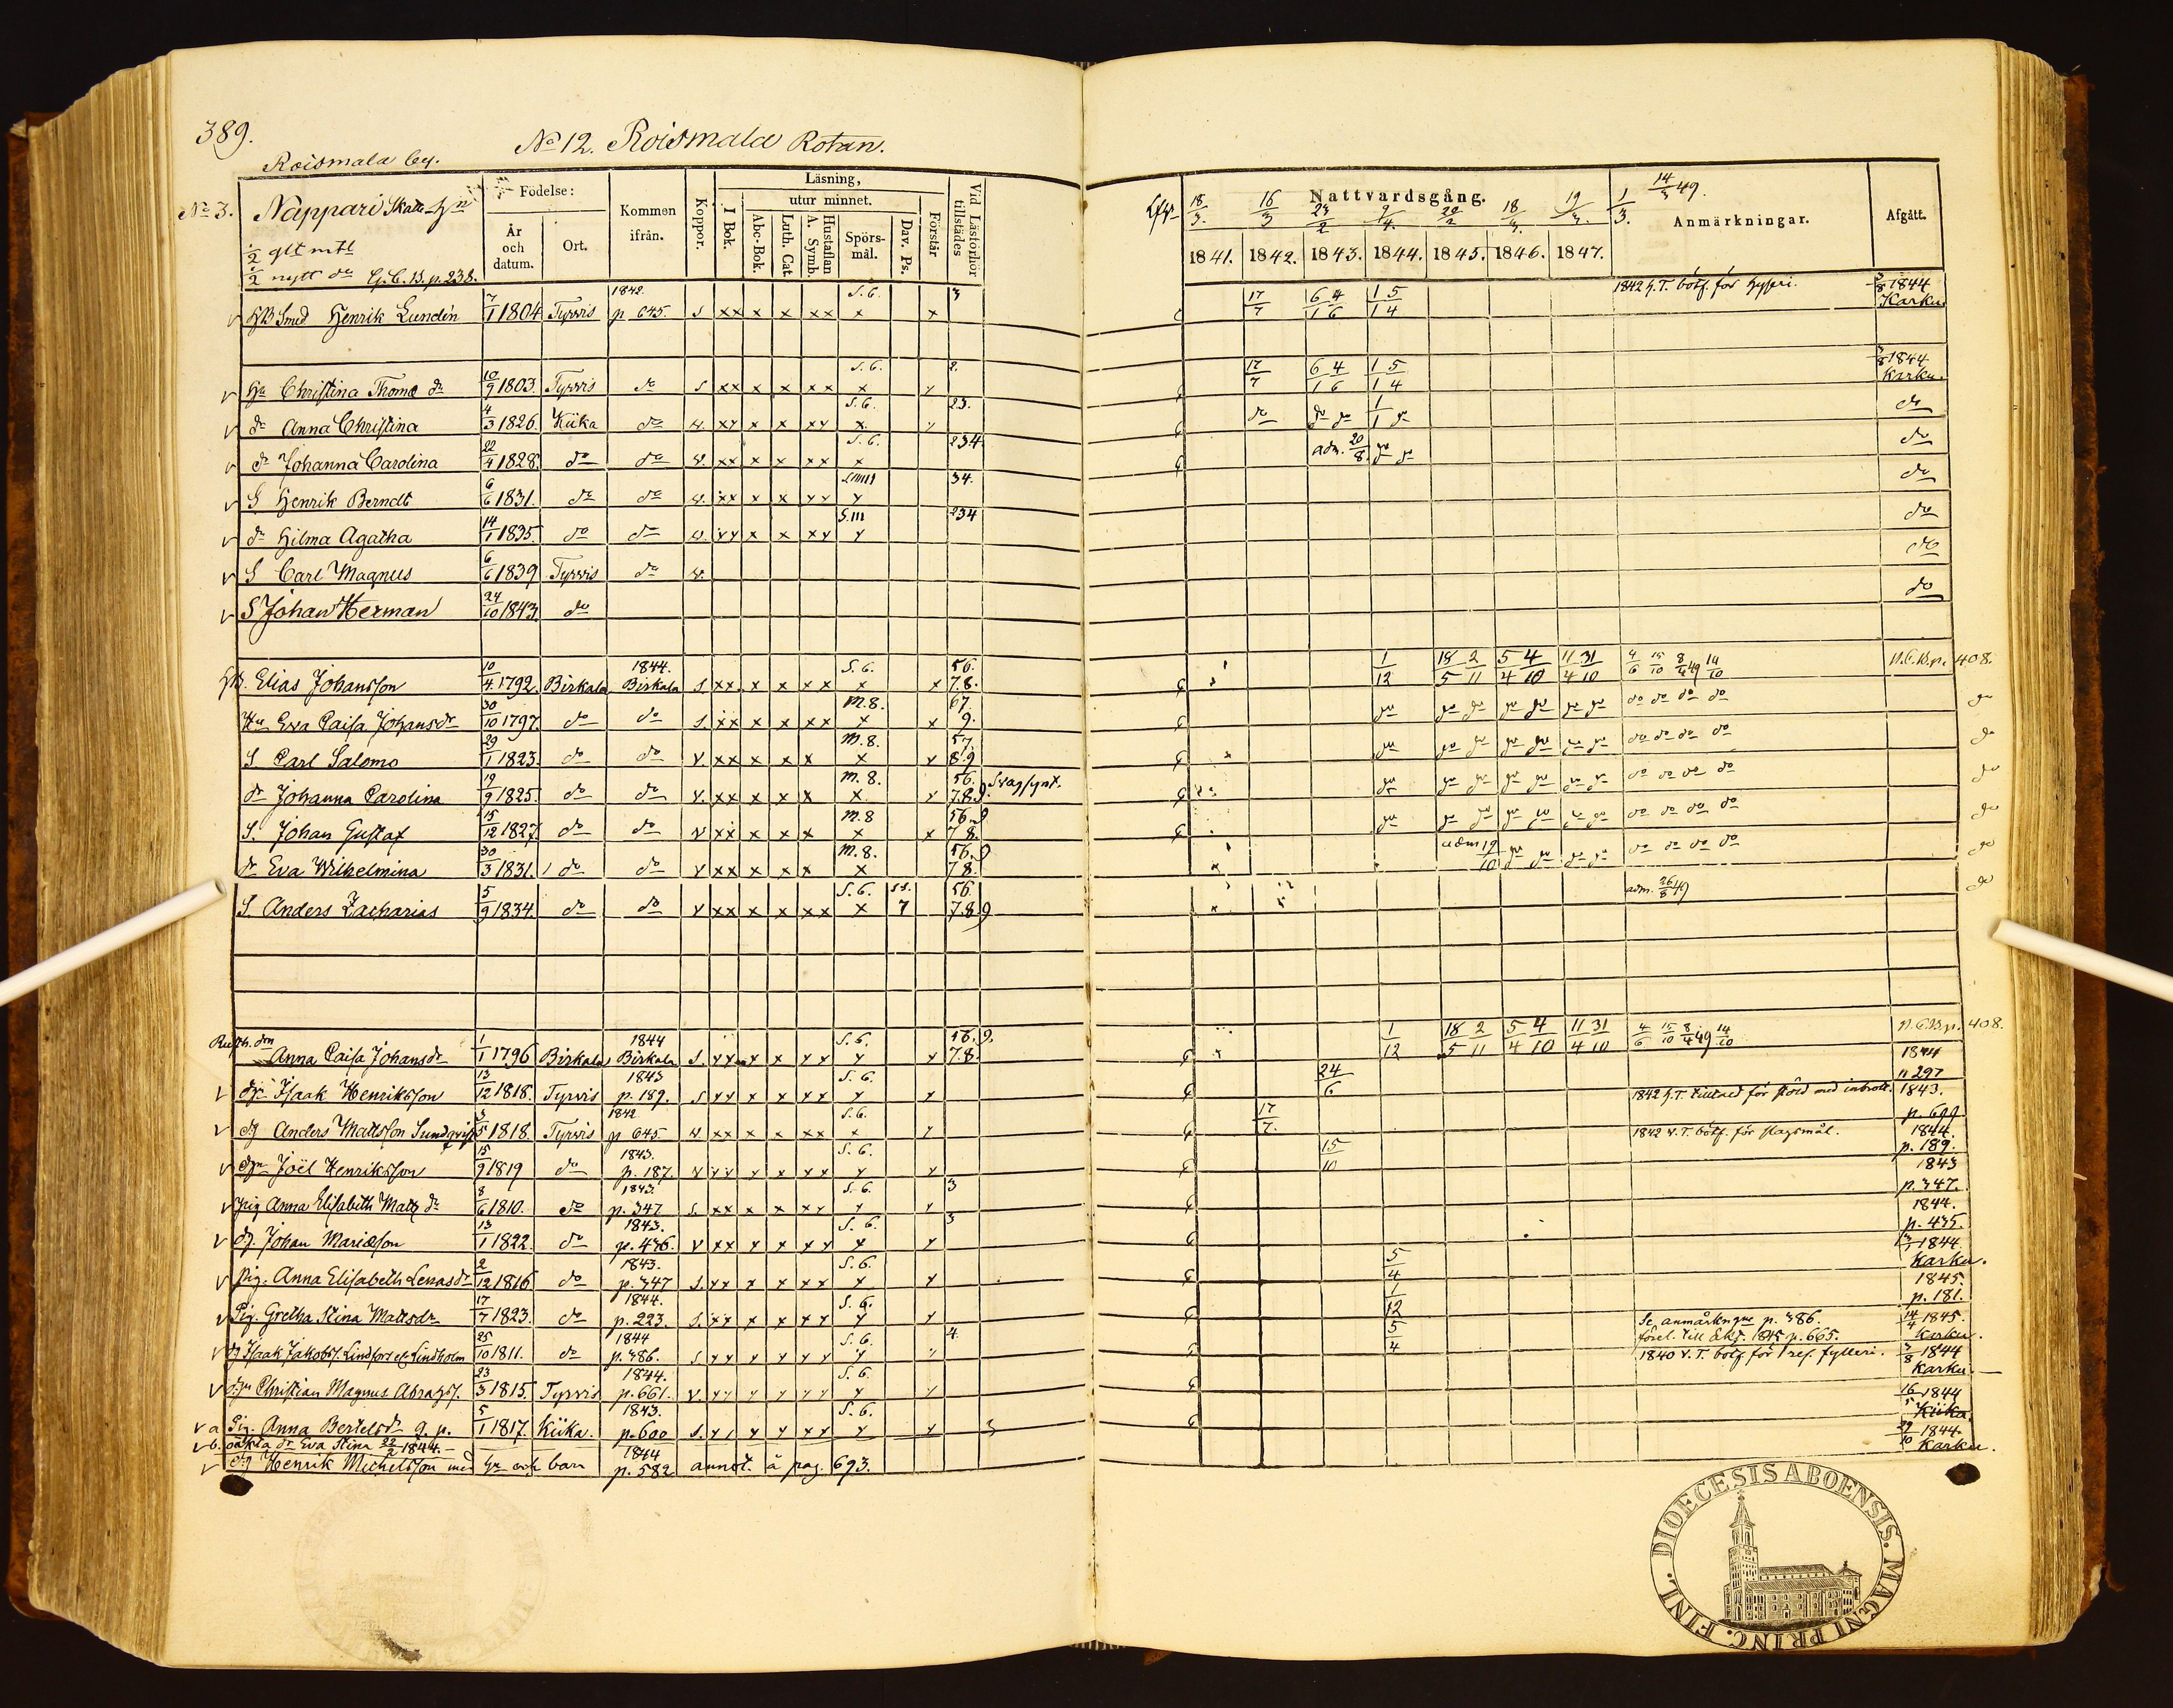 389.
No 12. Roismala Rotan.
Roismala by.
No 3. Nappari Skatte
1/2 glt mtl
1/2 nytt do G.C.B. p. 238.
Födelse:
År och datum.
Ort.
Kommen ifrån.
Koppor.
Läsning,
I Bok.
utur minnet.
Abc-Bok.
Luth. Cat.
Hustaflan A. Symb.
Spörsmål.
Dav. Ps.
Förstår
Vid Läsförhör tillstädes
Nattvardsgång.
18/3. 16/3 23/2 9/4. 20/2 18/3. 19/3. 1/3. 14/3 49.
1841. 1842. 1843. 1844. 1845. 1846. 1847.
Anmärkningar.
Afgått.
Smed Henrik Lundén 7/1 1804 Tyrvis 1842. p. 645. S xx x x xx S.6. x x 3 17/7 6/1 4/6 1/1 5/4 1842 H.T. bötf. för 3/8 1844 Karku
Hu Christina Thomæ dr 10/9 1803. Tyrvis do S xx x x xx S.6. x 2. 17/7 6/1 4/6 1/1 5/4 3/8 1844 Karku.
dr Anna Christina 4/3 1826. Kiika do v. xx x x xx S.6. x 23. do do do do
dr Johanna Carolina 22/4 1828. do do v. xx x x xx S.6. x 234 adm. 20/8 do do
S Henrik Berndt 6/6 1831. do do v. xx x x xx x 34. do
dr Hilma Agatha 14/1 1835. do do v. xx x x xx S.III x 234 do
S Carl Magnus 6/6 1839 Tyrvis do v. do
S Johan Herman 24/10 1843. do do
Elias Johansson 10/4. 1792. Birkala 1844. Birkala S xx x x xx S.6. x x 56. 7.8. 1/12 18/5 2/11 5/4 4/10 11/4 31/10 4/6 15/10 8/4 49 14/10 N.C.B.p. 408.
Hu Eva Caisa Johansdr 30/10 1797. do do S. xx x x xx M.8. x x 67. 9. do do do do do do do do do do do do
S Carl Salomo 29/1 1823. do do v xx x x x M.8. x x 57. 8.9 do do do do do do do do do do do do
dr Johanna Carolina 19/9 1825. do do v. xx x x x M.8. x x 56. 7.8.9. Svagsynt. do do do do do do do do do do do do
S. Johan Gustaf 15/12 1827. do do v xx x x x M.8 x x 56.9 7 8. do do do do do do do do do do do do
dr Eva Wilhelmina 30/3 1831. do do v xx x x x M.8. x 56.9 7.8. adm 19/10 do do do do do do do do do
S. Anders Zacharias 5/9 1834. do do v xx x x xx S.6. x 7 56. 7.8.9 adm. 26/8 49 do
Anna Caisa Johansdr 1/1 1796 Birkala 1844 Birkala S. xx x x xx S.6. x x 56.9. 7.8. 1/12 18/5 2/11 5/4 4/10 11/4 31/10 4/6 15/10 8/4 49 14/10 N.C.B.p. 408.
Isaak Henriksson 13/12 1818. Tyrvis 1843 p. 189. S xx x x xx S.6. x x 24/6 1842 H.T. tilltald för stöld med inbrott. 1844 p 297
dg Anders Mattsson Sundqvist 3/5 1818. Tyrvis 1842 p 645. v. xx x x xx S.6. x x 17/7. 1842 v. T. bötf. för slagsmål. 1843. p. 699
Joël Henriksson 15/9 1819 do 1843. p. 187. v xx x x xx S.6. x x 15/10 1844. p. 189.
pig Anna Elisabeth Matts dr 8/6 1810. do 1843. p. 347 S. xx x x xx S.6. x x 3 1843 p. 347.
dg. Johan Mariæson 13/1 1822. do 1843. p. 436. v xx x x xx S.6. x x 3 1844. p. 435.
Pig. Anna Elisabeth Lenasdr 2/12 1816 do 1843. p. 347 S. xx x x xx S.6. x x 5/4 1844. Karku.
Pig. Gretha Stina Mattsdr 17/7 1823. do 1844. p. 223. S. xx x x xx S.6. x x 1/12 1845. p. 181.
dg Isaak Jakobss. Lindfors el. Lindholm 25/10 1811. do 1844 p. 386. S xx x x xx S.6. x x 4. 5/4 Se anmärkngne p. 386. förel. till äkt. 1845 p. 665. 14/4 1845. Karku.
Christian Magnus Abrahss. 23/3 1815. Tyrvis 1844. p. 661. v xx x x xx S.6. x x 1840 V.T. bötf. för 1 res. fylleri. 3/8 1844 Karku.
a Pig. Anna Bertelsdr q. p. 5/1 1817. Kiika. 1843. p. 600 S. xx x x xx S.6. x x 3 16/5 1844 Kiika.
b. oäkta dr Eva Stina 22/2 1844.
dg Henrik Michelsson med hu och barn 1844 p. 582 annot. å pag. 693. 29/10 1844. Karku.
DIOECESIS ABOENSIS. MAGNI PRINC. FINL.